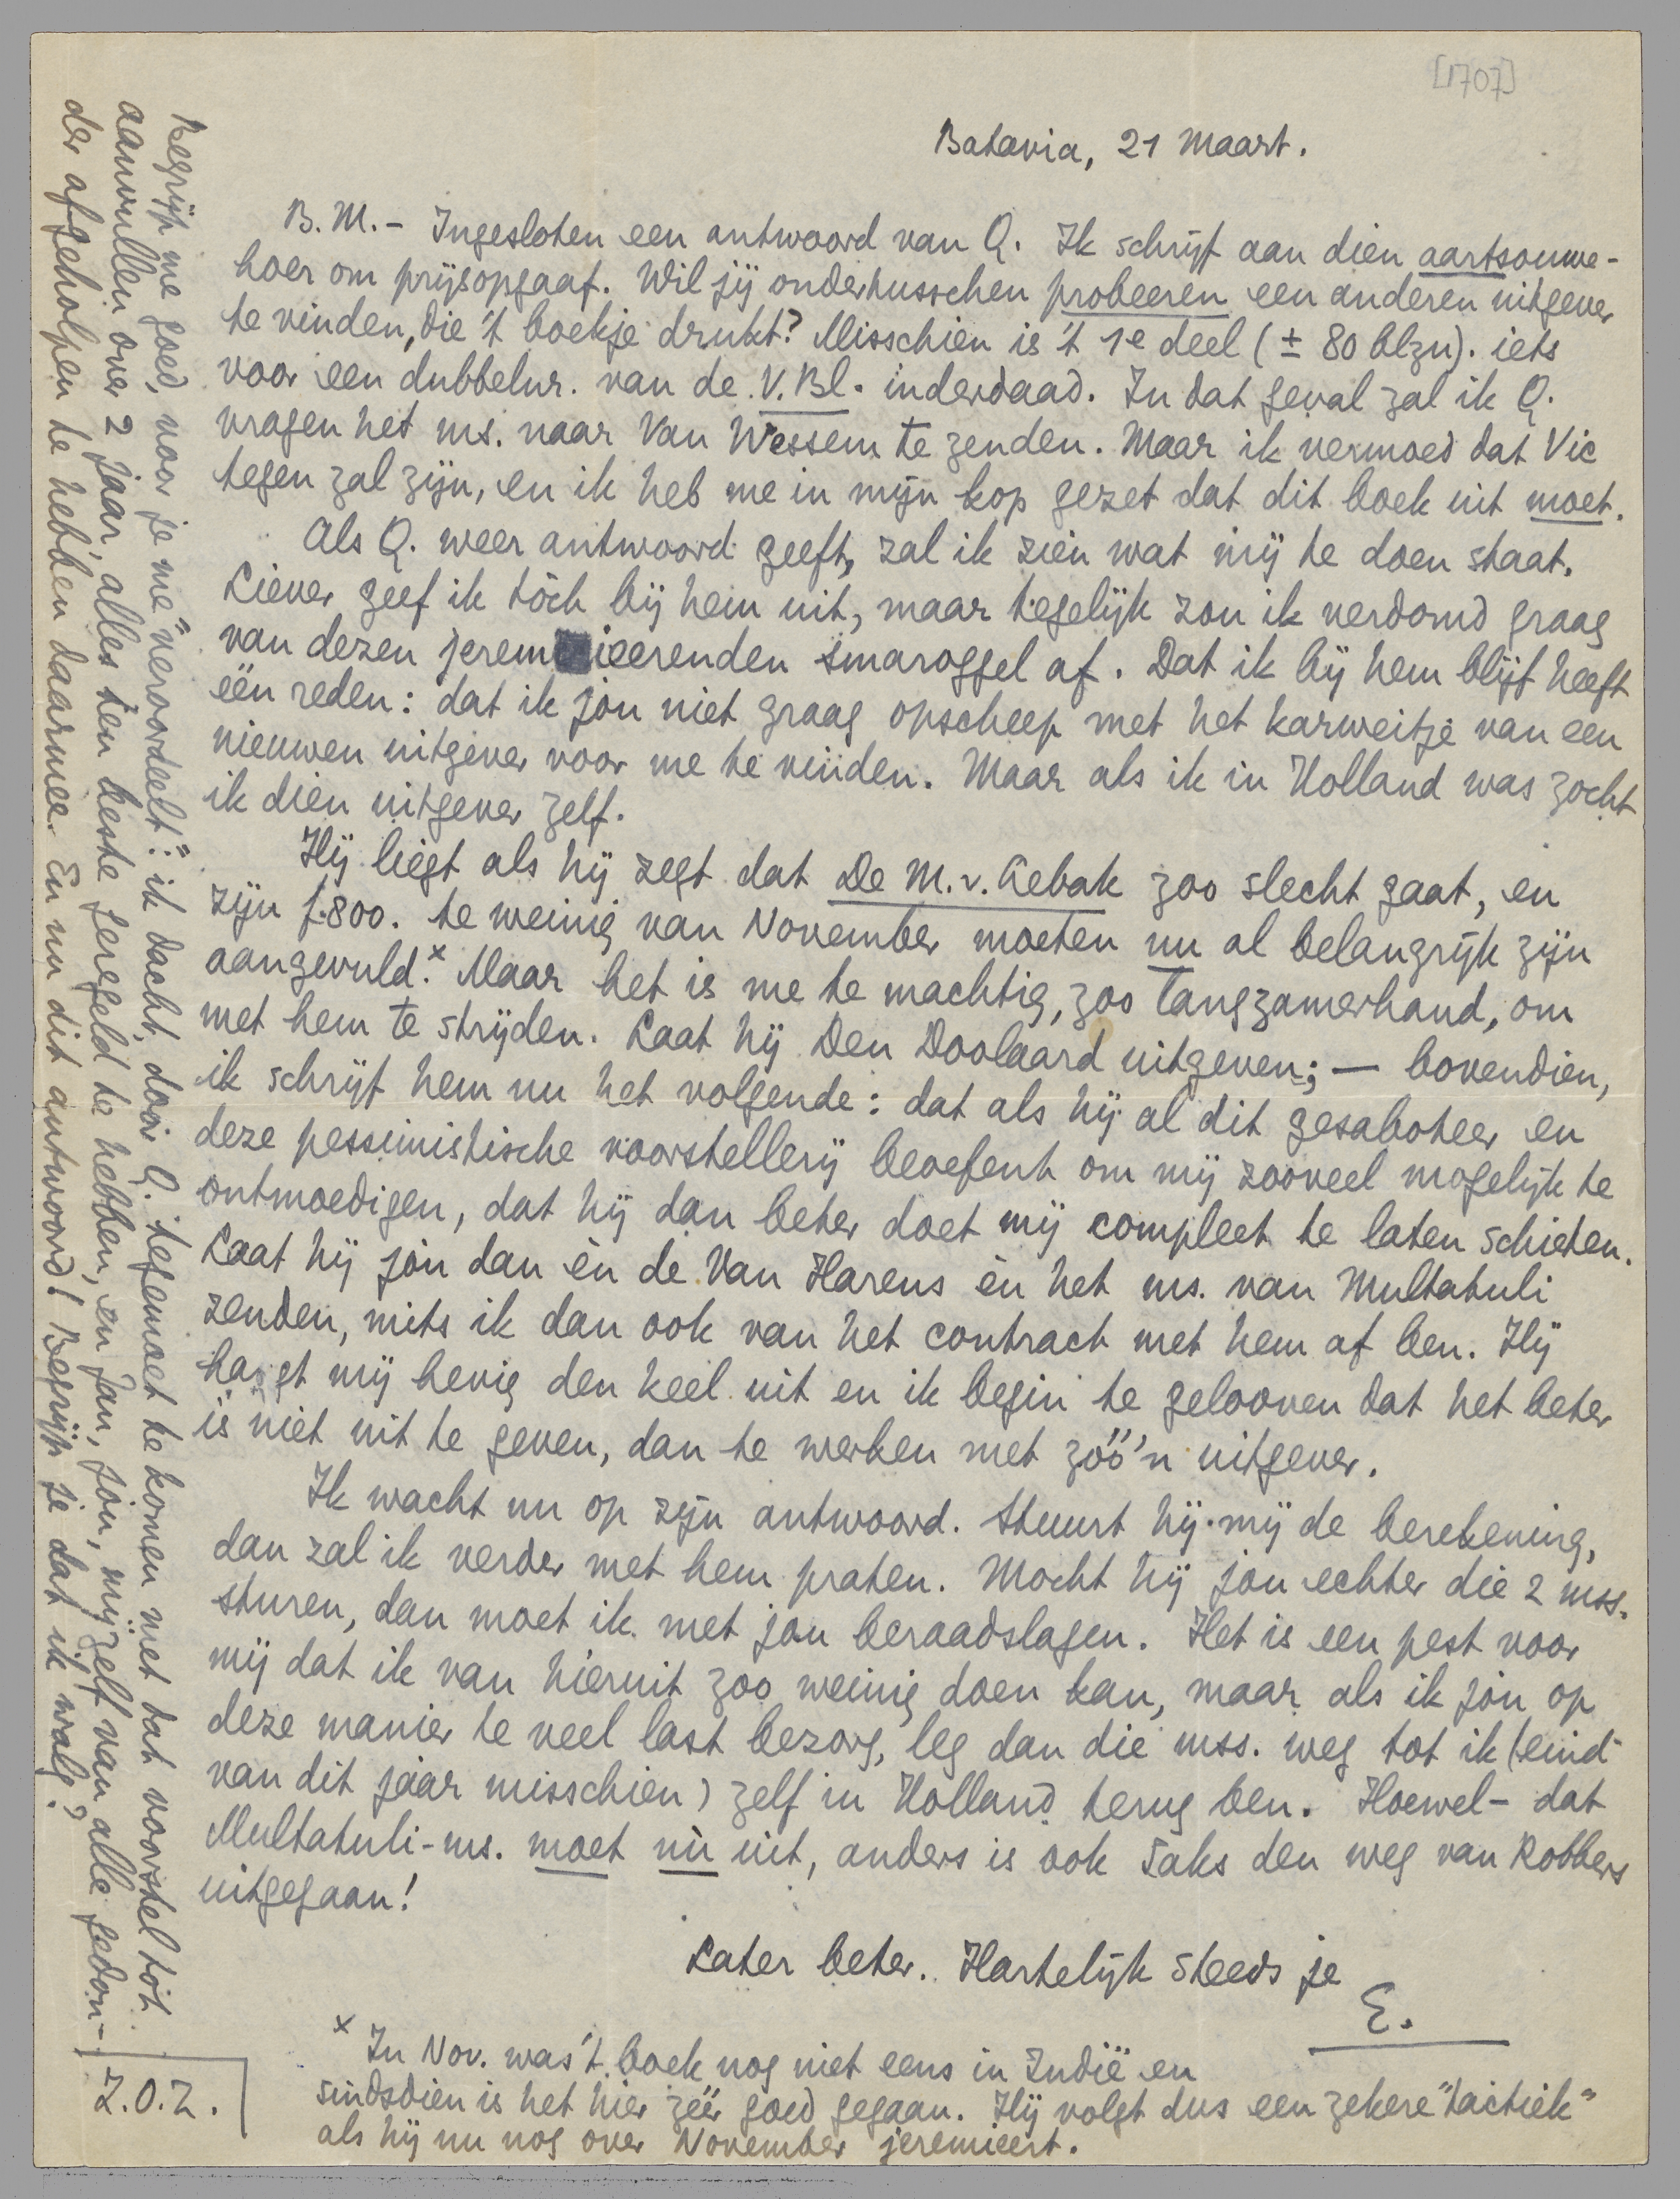 [1707]
Batavia, 21 Maart.
B. M. - Ingesloten een antwoord van Q. Ik schrijf aan dien aartsouwe-
hoer om prijsopgaaf. Wil jij ondertusschen probeeren een anderen uitgever
te vinden, die 't boekje drukt? Misschien is 't 1e deel (± 80 blzn). iets
voor een dubbelnr. van de V. Bl. inderdaad. In dat geval zal ik Q.
vragen het ms. naar Van Wessem te zenden. Maar ik vermoed dat Vic
tegen zal zijn, en ik heb me in mijn kop gezet dat dit boek uit moet.
Als Q. weer antwoord geeft, zal ik zien wat mij te doen staat.
Liever geef ik tòch bij hem uit, maar tegelijk zou ik verdomd graag
van dezen jeremieerenden smaroggel af. Dat ik bij hem blijf heeft
één reden: dat ik jou niet graag opscheep met het karweitje van een
nieuwen uitgever voor me te vinden. Maar als ik in Holland was zocht
ik dien uitgever zelf.
Hij liegt als hij zegt dat De M. v. Lebak zoo slecht gaat, en
zijn f. 800. te weinig van November moeten nu al belangrijk zijn
aangevuld.x Maar het is me te machtig, zoo langzamerhand, om
met hem te strijden. Laat hij Den Doolaard uitgeven; — bovendien,
ik schrijf hem nu het volgende: dat als hij al dit gesaboteer en
deze pessimistische voorstellerij beoefent om mij zooveel mogelijk te
ontmoedigen, dat hij dan beter doet mij compleet te laten schieten.
Laat hij jòu dan èn de Van Harens èn het ms. van Multatuli
zenden, mits ik dan ook van het contract met hem af ben. Hij
hangt mij hevig den keel uit en ik begin te gelooven dat het beter
is niet uit te geven, dan te werken met zóó'n uitgever.
Ik wacht nu op zijn antwoord. Stuurt hij mij de berekening,
dan zal ik verder met hem praten. Mocht hij jou echter die 2 mss.
sturen, dan moet ik met jou beraadslagen. Het is een pest voor
mij dat ik van hieruit zoo weinig doen kan, maar als ik jòu op
deze manier te veel last bezorg, leg dan die mss. weg tot ik (eind
van dit jaar misschien) zelf in Holland terug ben. Hoewel - dat
Multatuli-ms. moet nù uit, anders is ook Saks den weg van Robbers
uitgegaan!
Later beter. Hartelijk steeds je
E.
x In Nov. was 't boek nog niet eens in Indië en
sindsdien is het hier zéér goed gegaan. Hij volgt dus een zekere "tactiek"
als hij nu nog over November jeremieert.
Begrijp me goed, voor je me "veroordeelt": ik dacht, door Q. tegemoet te komen met dat voorstel tot
aanvullen over 2 jaar, alles ten beste geregeld te hebben, en Jan, jou, mijzelf van alle gedon-
der afgeholpen te hebben daarmee. En nu dit antwoord! Begrijp je dat ik walg?
Z.O.Z.